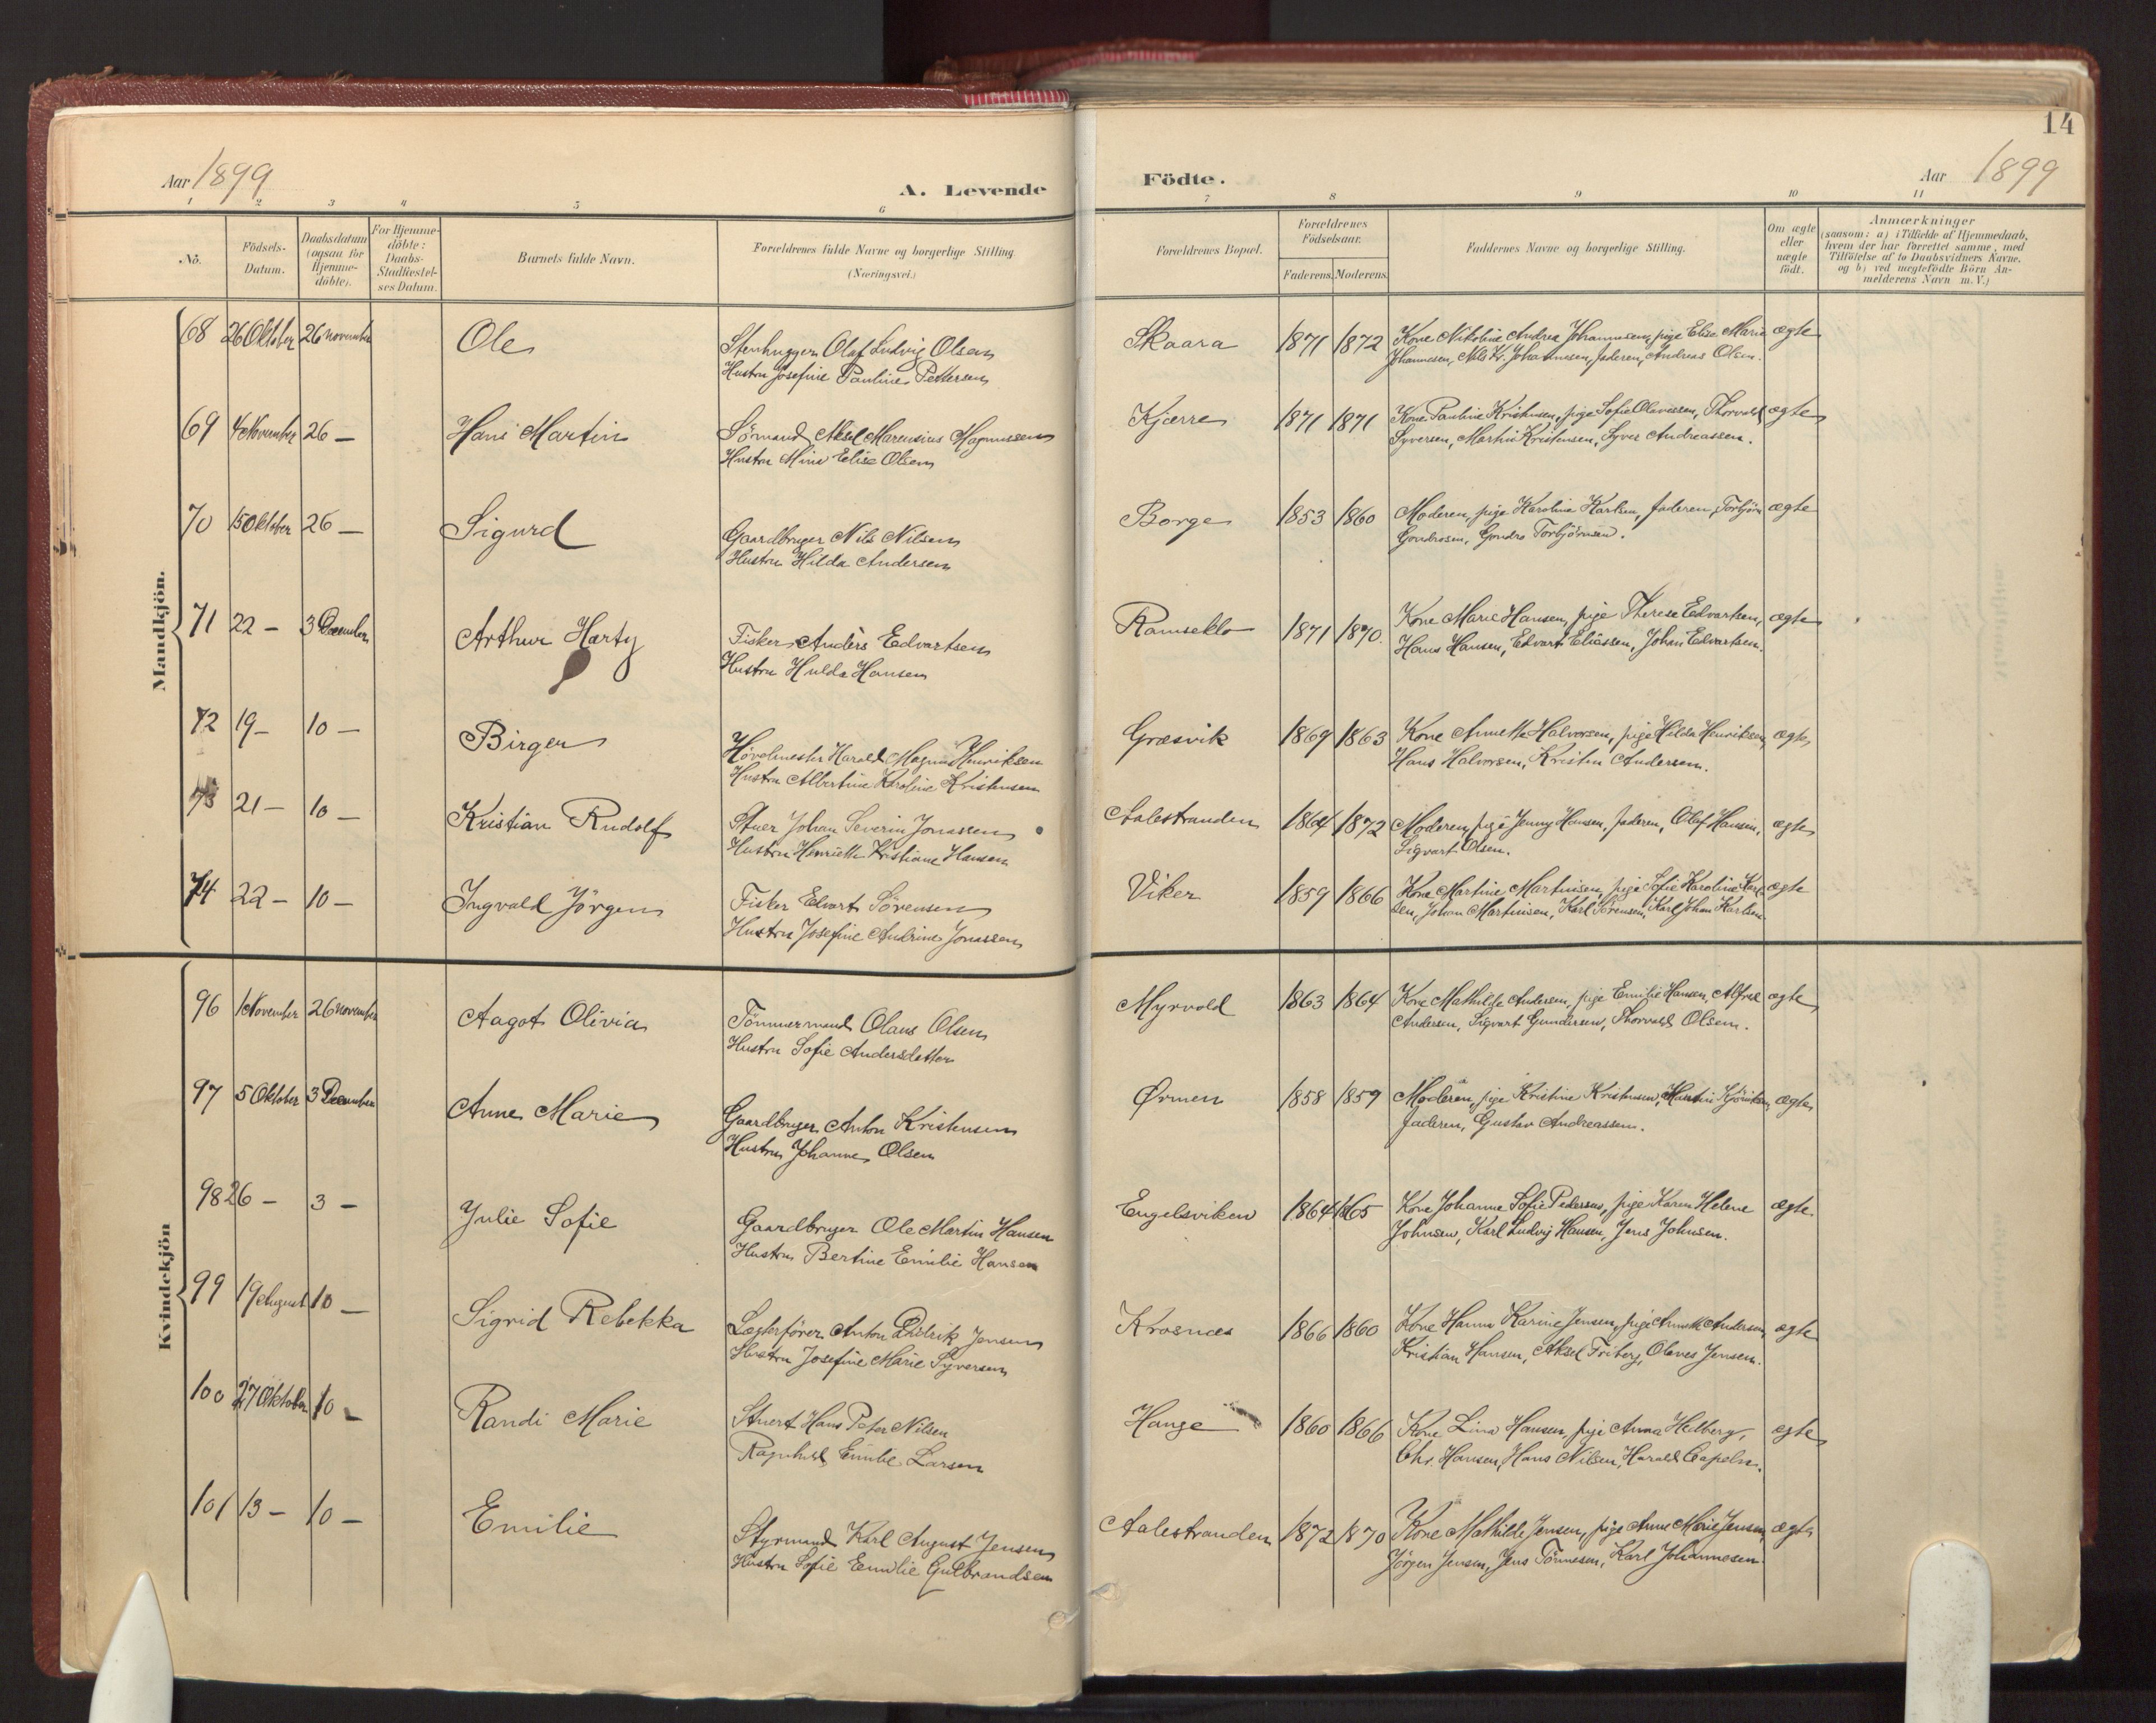 14
Aar 1899
A. Levende
Födte.
Aar 1899
1 2 3 4 5 6 7 8 9 10 11
No.
Födsels-
Datum.
Daabsdatum
(ogsaa for
Hjemme-
döbte).
For Hjemme-
döbte:
Daabs-
Stadfæstel-
ses Datum.
Barnets fulde Navn.
Forældrenes fulde Navne og borgerlige Stilling
(Næringsvei.)
Forældrenes Bopæl.
Forældrenes
Födselsaar.
Faderens. Moderens.
Faddernes Navne og borgerlige Stilling.
Om ægte
eller
uægte
födt.
Anmærkninger
(saasom: a) i Tilfælde af Hjemmedaab,
hvem der har forrettet samme, med
Tilföielse af to Daabsvidners Navne.
og b) ved uægtefödte Börn An-
melderens Navn m. V.)
Mandkjön.
68 26 Oktober 26 november Ole
Stenhugger Olaf Ludvig Olsen
Hustru Josefine Pauline Pettersen
Skaara 1871 1872
Kone Nikoline Andrea Johannesen, pige Elise Marie
Johannesen, Nils Kr. Johannesen, faderen, Andreas Olsen.
ægte
69 4 November 26 — Hans Martin
Sömand Aksel Marensius Magnussen
Hustru Mina Elise Olsen
Kjærre 1871 1871
Kone Pauline Kristensen, pige Sofie Olavessen, Thorvald
Syversen, Martin Kristensen, Syver Andreassen.
ægte
70 15 Oktober 26 — Sigurd
Gaardbruger Nils Nilsen
Hustru Hilda Andersen
Borge 1853 1860
Moderen, pige Karoline Karlsen, faderen, Torbjörn
Gondrosen, Gondro Torbjörnsen.
ægte
71 22 — 3 December Arthur Harty
Fisker Anders Edvartsen
Hustru Hulda Hansen
Ramseklo 1871 1870.
Kone Marie Hansen, pige Therese Edvartsen,
Hans Hansen, Edvart Eliassen, Johan Edvartsen.
ægte
72 19 — 10 — Birger
Hövelmester Harald Magnus Henriksen
Hustru Albertine Karoline Kristensen
Græsvik 1869 1863
Kone Annette Halvorsen, pige Hilda Henriksen,
Hans Halvorsen, Kristen Andersen.
ægte
73 21 — 10 — Kristian Rudolf
Stuer Johan Severin Jonassen
Hustru Henriette Kristiane Hansen
Aalestranden 1864 1872
Moderen, pige Jenny Hansen, faderen, Olaf Hansen,
Sigvart Olsen.
ægte
74 22 — 10 — Ingvald Jörgen
Fisker Edvart Sörensen
Hustru Josefine Andrine Jonassen
Viker 1859 1866
Kone Martine Martinsen, pige Sofie Karoline Karl-
sen, Johan Martinsen, Karl Sörensen, Karl Johan Karlsen
ægte
Kvindekjön
96 1 November 26 november Aagot Olivia
Tömmermand Olaus Olsen
Hustru Sofie Andersdatter
Myrvold 1863 1864
Kone Mathilde Andersen, pige Emilie Hansen, Alfred
Andersen, Sigvart Gundersen, Thorvald Olsen.
ægte
97 5 Oktober 3 December Anne Marie
Gaardbruger Anton Kristensen
Hustru Johanne Olsen
Ørmen 1858 1859
Moderen, pige Kristine Kristensen, Martin
faderen, Gustav Andreassen.
ægte
98 26 — 3 — Julie Sofie
Gaardbruger Ole Martin Hansen
Hustru Bertine Emilie Hansen
Engelsviken 1864 1865
Kone Johanne Sofie Pedersen, pige Karen Helene
Johnsen, Karl Ludvig Hansen, Jens Johnsen.
ægte.
99 19 August 10 — Sigrid Rebekka
Lægterförer Anton Didrik Jensen
Hustru Josefine Marie Syversen
Krosnæs 1866 1860
Kone Hanna Karine Jensen, pige Annette Andersen,
Kristian Hansen, Aksel Friberg, Olaves Jensen.
ægte
100 27 Oktober 10 — Randi Marie
Stuert Hans Peter Nilsen
Ragnhild Emilie Larsen
Hauge 1860 1866
Kone Lina Hansen, pige Anna Helberg,
Chr. Hansen, Hans Nilsen, Harald Capeln.
ægte
101 13 — 10 — Emilie
Styrmand Karl August Jensen
Hustru Sofie Emilie Gulbrandsen
Aalestranden 1872 1870
Kone Mathilde Jensen, pige Anne Marie Jensen,
Jörgen Jensen, Jens Tönnesen, Karl Johannesen
ægte